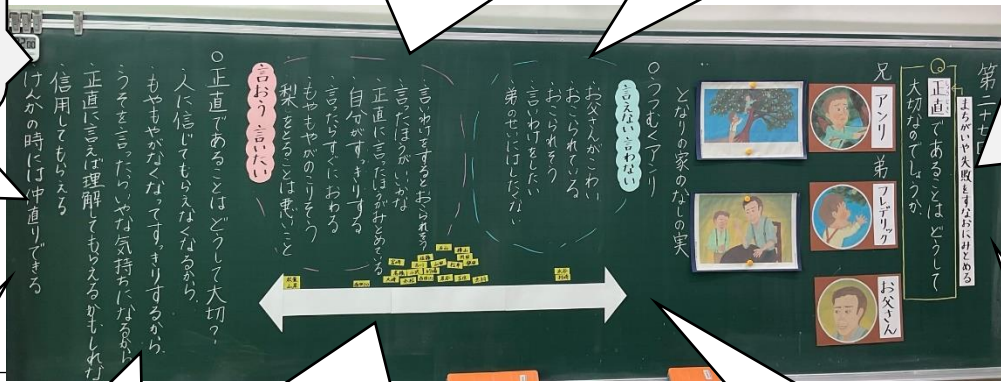 第二十
まちがいや失敗をすなおにみとめる
正直であることはどうして
大切なのでしょうか
兄 アンリ
弟 フレデリック
お父さん
○うつむくアンリ
となりの家のなしの実
言えない 言わない
お父さんがこわい
おこられている
おこられそう
言いわけをしたい
弟のせいにはしたくない
言いわけをするとおこられそう
言ったほうがいいかな
正直に言ったほうが
自分がすっきりする
言ったらすぐにおわる
もやもやがのこりそう
梨をとることは悪いこと
言おう 言いたい
○正直であることはどうして大切?
人に信じてもらえなくなるから
もやもやがなくなってすっきりするから
うそを言ったらいやな気持ちになるから
正直に言えば理解してもらえるかもしれな
信用してもらえる
けんかの時には仲直りできる